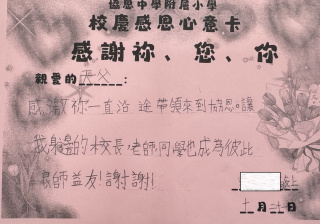 協恩中學附屬小學
校慶感恩心意卡
感謝祢、您、你
親愛的天父:
感激祢一直沿途帶領來到協恩,讓
我身邊的校長,老師同學也成為彼此
良師益友!謝謝!
敬上
十一月二十日